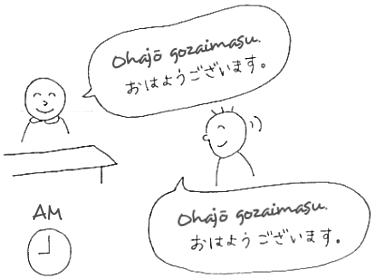 Ohajō gozaimasu.
おはようございます。
AM
Ohajō gozaimasu.
おはようございます。